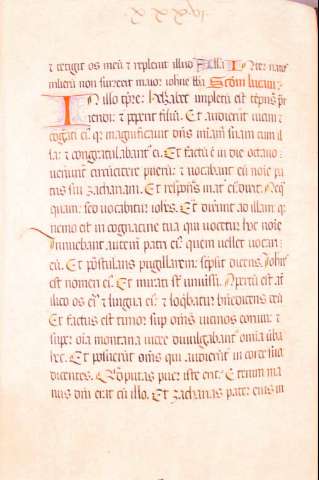 & tetigit os meū & repleuit illud Alla Inter natos
mulierū non surrexit maior iohāne bta Scdm lucam
In illo tpre: helisabet impletū est tēpus pa
riendi: & peperit filiū. Et audierunt uicini &
cognati eiꝰ qꝛ magnificauit dn̄s mīam suam cum il
la: & congratulabant ei. Et factū ē in die octauo
uenerunt circūcidere puerū: & uocabant eū nōie pa
tris sui zachariam. Et respondens mat eiꝰ dixit. Neq̄
quam: sed uocabitur iohēs. Et dixerunt ad illam: qꝛ
nemo est in cognatione tua qui uocetur hoc noīe
Innuebant autem patri eiꝰ quem uellet uocari
eū. Et postulans pugillarem: scripsit dicens. Iohēs
est nomen eiꝰ. Et mirati sūt uniuersi. Apertū est āt
ilico os eiꝰ & lingua eiꝰ: & loq̄batur bn̄dicens deū
Et factus est timor sup om̄s uicinos eorum: &
super oīa montana iudee diuulgabant omīa uba
hec. Et posuerunt om̄s qui audierunt in corde suo
dicentes. Quis putas puer iste erit: Etenim ma
nus dnī erat cū illo. Et zacharias pater eius im